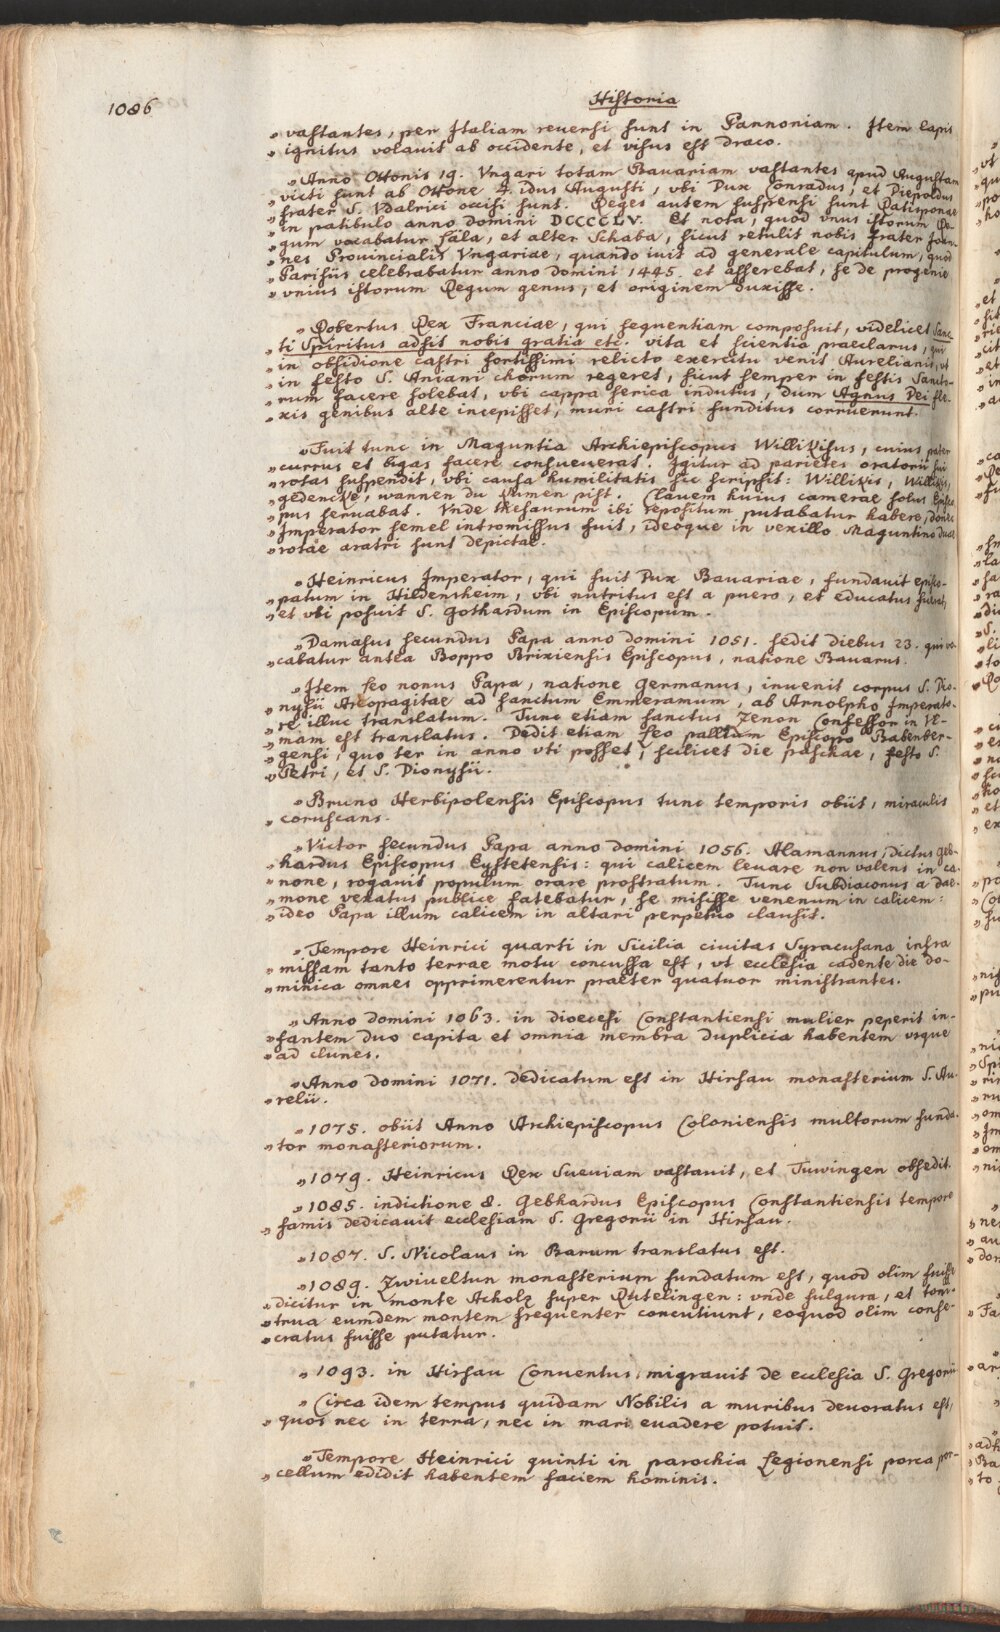 1086
Historia
„vastantes, per Italiam reuersi sunt in Pannoniam. Item lapis
„ignitus volauit ab occidente, et visus est draco.
„Anno Ottonis 19. Vngari totam Bauariam vastantes apud Augustam
„victi sunt ab Ottone 4. idus Augusti, vbi Dux Conradus, et Diepoldus
„frater S. Vdalrici occisi sunt. Reges autem suspensi sunt Ratisponae
„in patibulo anno domini DCCCCLV. Et nota, quod vnus istorum Re-
„gum vocabatur Sala, et alter Schaba, sicut retulit nobis frater Joan-
„nes Prouincialis Vngariae, quando iuit ad generale capitulum, quod
„Parisiis celebrabatur anno domini 1445. et asserebat, se de progenie
„vnius istorum Regum genus, et originem duxisse.
„Robertus Rex Franciae, qui sequentiam composuit, videlicet Sanc-
„ti Spiritus adsit nobis gratia etc. vita et scientia praeclarus, qui
„in obsidione castri fortissimi relicto exercitu venit Aurelianis, vt
„in festo S. Aniani chorum regeret, sicut semper in festis Sancto-
„rum facere solebat, vbi cappa serica indutus, dum Agnus Dei fle-
„xis genibus alte incepisset, muri castri funditus corruerunt.
„Fuit tunc in Maguntia Archiepiscopus Willikisus, cuius pater
„currus et bigas facere consueuerat. Igitur ad parietes oratorii sui
„rotas suspendit, vbi causa humilitatis sic scripsit: Willikis, Willikis,
„gedencke, wannen du kumen pist. Clauem huius camerae solus Episco
„pus seruabat. Vnde thesaurum ibi repositum putabatur habere, donec
„Imperator semel intromissus fuit, ideoque in vexillo Maguntino duae
„rotae aratri sunt depictae.
„Heinricus Imperator, qui fuit Dux Bauariae, fundauit episco-
„patum in Hildensheim, vbi nutritus est a puero, et educatus fuerat,
„et vbi posuit S. Gothardum in Episcopum.
„Damasus secundus Papa anno domini 1051. sedit diebus 23. qui vo-
„cabatur antea Boppo Brixiensis Episcopus, natione Bauarus.
„Item Leo nonus Papa, natione Germanus, inuenit corpus S. Dio-
„nysii Areopagitae ad sanctum Emmeramum, ab Arnolpho Imperato-
„re illuc translatum. Tunc etiam sanctus Zenon Confessor in Vl-
„mam est translatus. Dedit etiam Leo pallium Episcopo Babenber-
„gensi, quo ter in anno vti posset, scilicet die paschae, festo S.
„Petri, et S. Dionysii.
„Bruno Herbipolensis Episcopus tunc temporis obiit, miraculis
„coruscans.
„Victor secundus Papa anno domini 1056. Alamannus, dictus Geb-
„hardus Episcopus Eystetensis: qui calicem leuare non valens in ca-
„none, rogauit populum orare prostratum. Tunc Subdiaconus a dae-
„mone vexatus publice fatebatur, se misisse venenum in calicem:
„ideo Papa illum calicem in altari perpetuo clausit.
„Tempore Heinrici quarti in Sicilia ciuitas Syracusana infra
„missam tanto terrae motu concussa est, vt ecclesia cadente die do-
„minica omnes opprimerentur praeter quatuor ministrantes.
„Anno domini 1063. in dioecesi Constantiensi mulier peperit in-
„fantem duo capita et omnia membra duplicia habentem vsque
„ad clunes.
„Anno domini 1071. dedicatum est in Hirsau monasterium S. Au-
„relii.
„1075. obiit Anno Archiepiscopus Coloniensis multorum funda-
„tor monasteriorum.
„1079. Heinricus Rex Sueuiam vastauit, et Tuwingen obsedit.
„1085. indictione 8. Gebhardus Episcopus Constantiensis tempore
„famis dedicauit ecclesiam S. Gregorii in Hirsau.
„1087. S. Nicolaus in Barum translatus est.
„1089. Zwiueltun monasterium fundatum est, quod olim fuisse
„dicitur in monte Acholz super Rutelingen: vnde fulgura, et toni-
„trua eumdem montem frequenter concutiunt, eoquod olim conse-
„cratus fuisse putatur.
„1093. in Hirsau Conuentus migrauit de ecclesia S. Gregorii
„Circa idem tempus quidam Nobilis a muribus deuoratus est,
„quos nec in terra, nec in mari euadere potuit.
„Tempore Heinrici quinti in parochia Legionensi porca por-
„cellum edidit habentem faciem hominis.